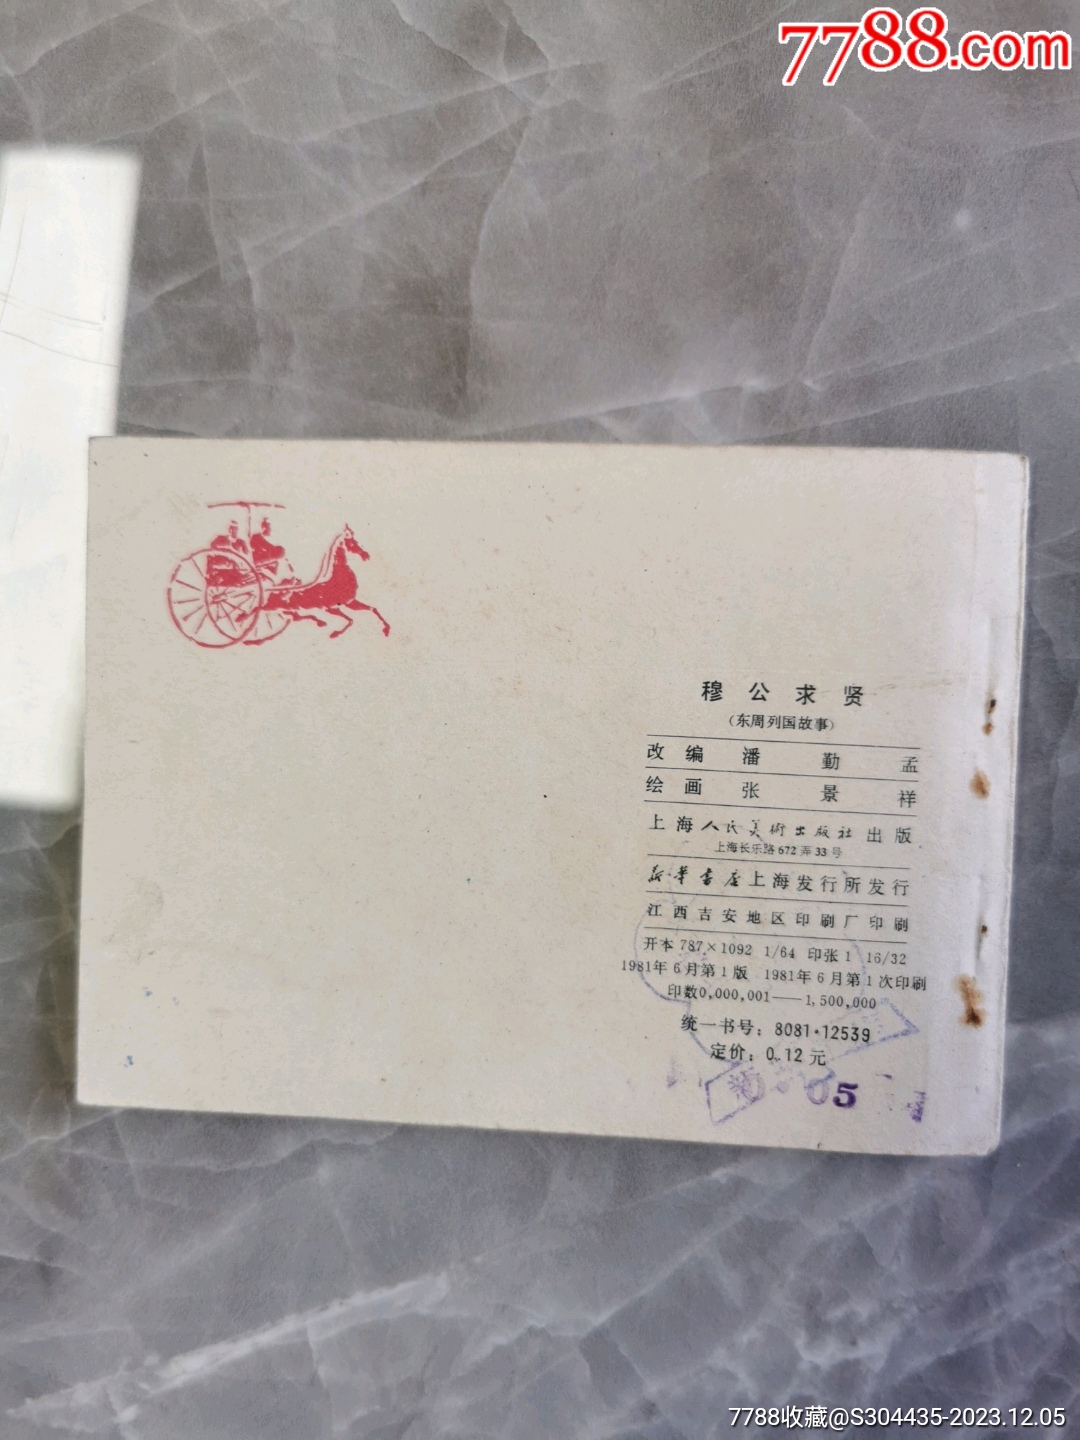 7788.com
穆公求贤
(东周列国故事)
改编 潘勤孟
绘画 张景祥
上海人民美術出版社出版
上海长乐路672弄33号
新华书店上海发行所发行
江西吉安地区印刷厂印刷
开本 787×1092 1/64 印张 1 16/32
1981年6月第1版 1981年6月第1次印刷
印数0,000,001——1,500,000
统一书号：8081·12539
定价：0.12元
05
7788收藏@S304435-2023.12.05